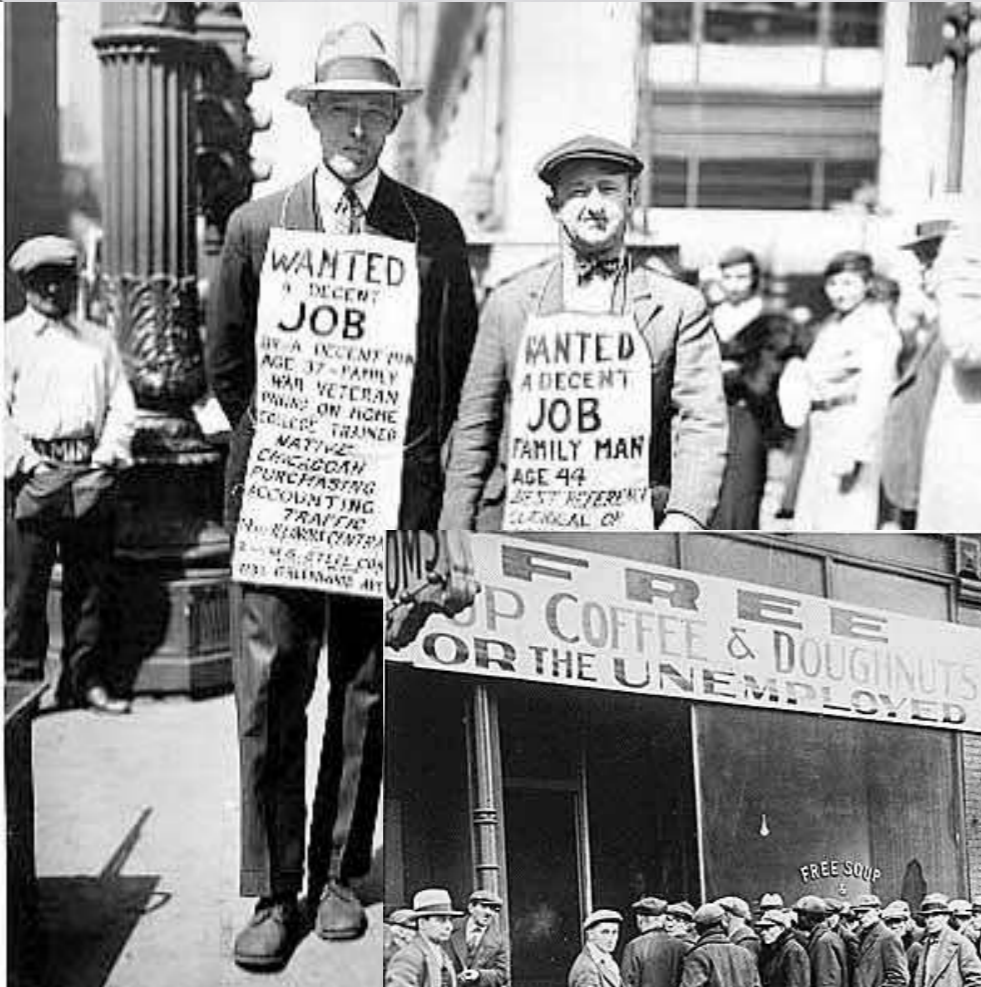 WANTED
A DECENT
JOB
BY A DECENT MAN
AGE 37 - FAMILY
WAR VETERAN
PAYING ON HOME
COLLEGE TRAINED
NATIVE
CHICAGOAN
PURCHASING
ACCOUNTING
TRAFFIC
CENTRA
STEEL COR
GREENWOOD AVE
WANTED
A DECENT
JOB
FAMILY MAN
AGE 44
BEST REFERENC
CLERICAL OF
FREE
UP COFFEE & DOUGHNUTS
OR THE UNEMPLOYED
FREE SOUP
&